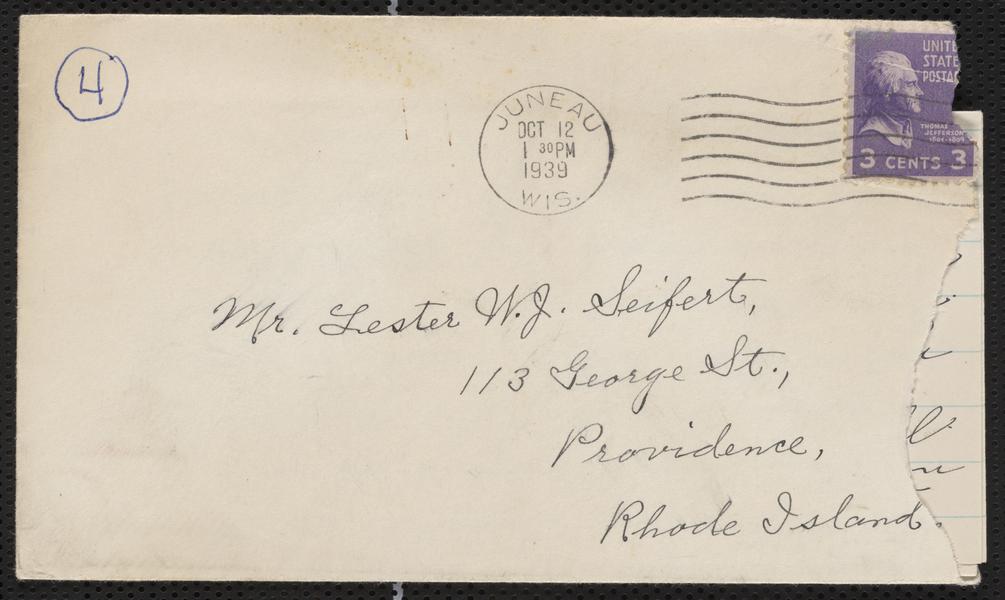 4
JUNEAU
OCT 12
1 30PM
1939
WIS.
UNITE
STATE
POSTAG
THOMAS
JEFFERSON
1801-1809
3 CENTS 3
Mr. Lester W.J. Seifert,
113 George St.,
Providence,
Rhode Island.